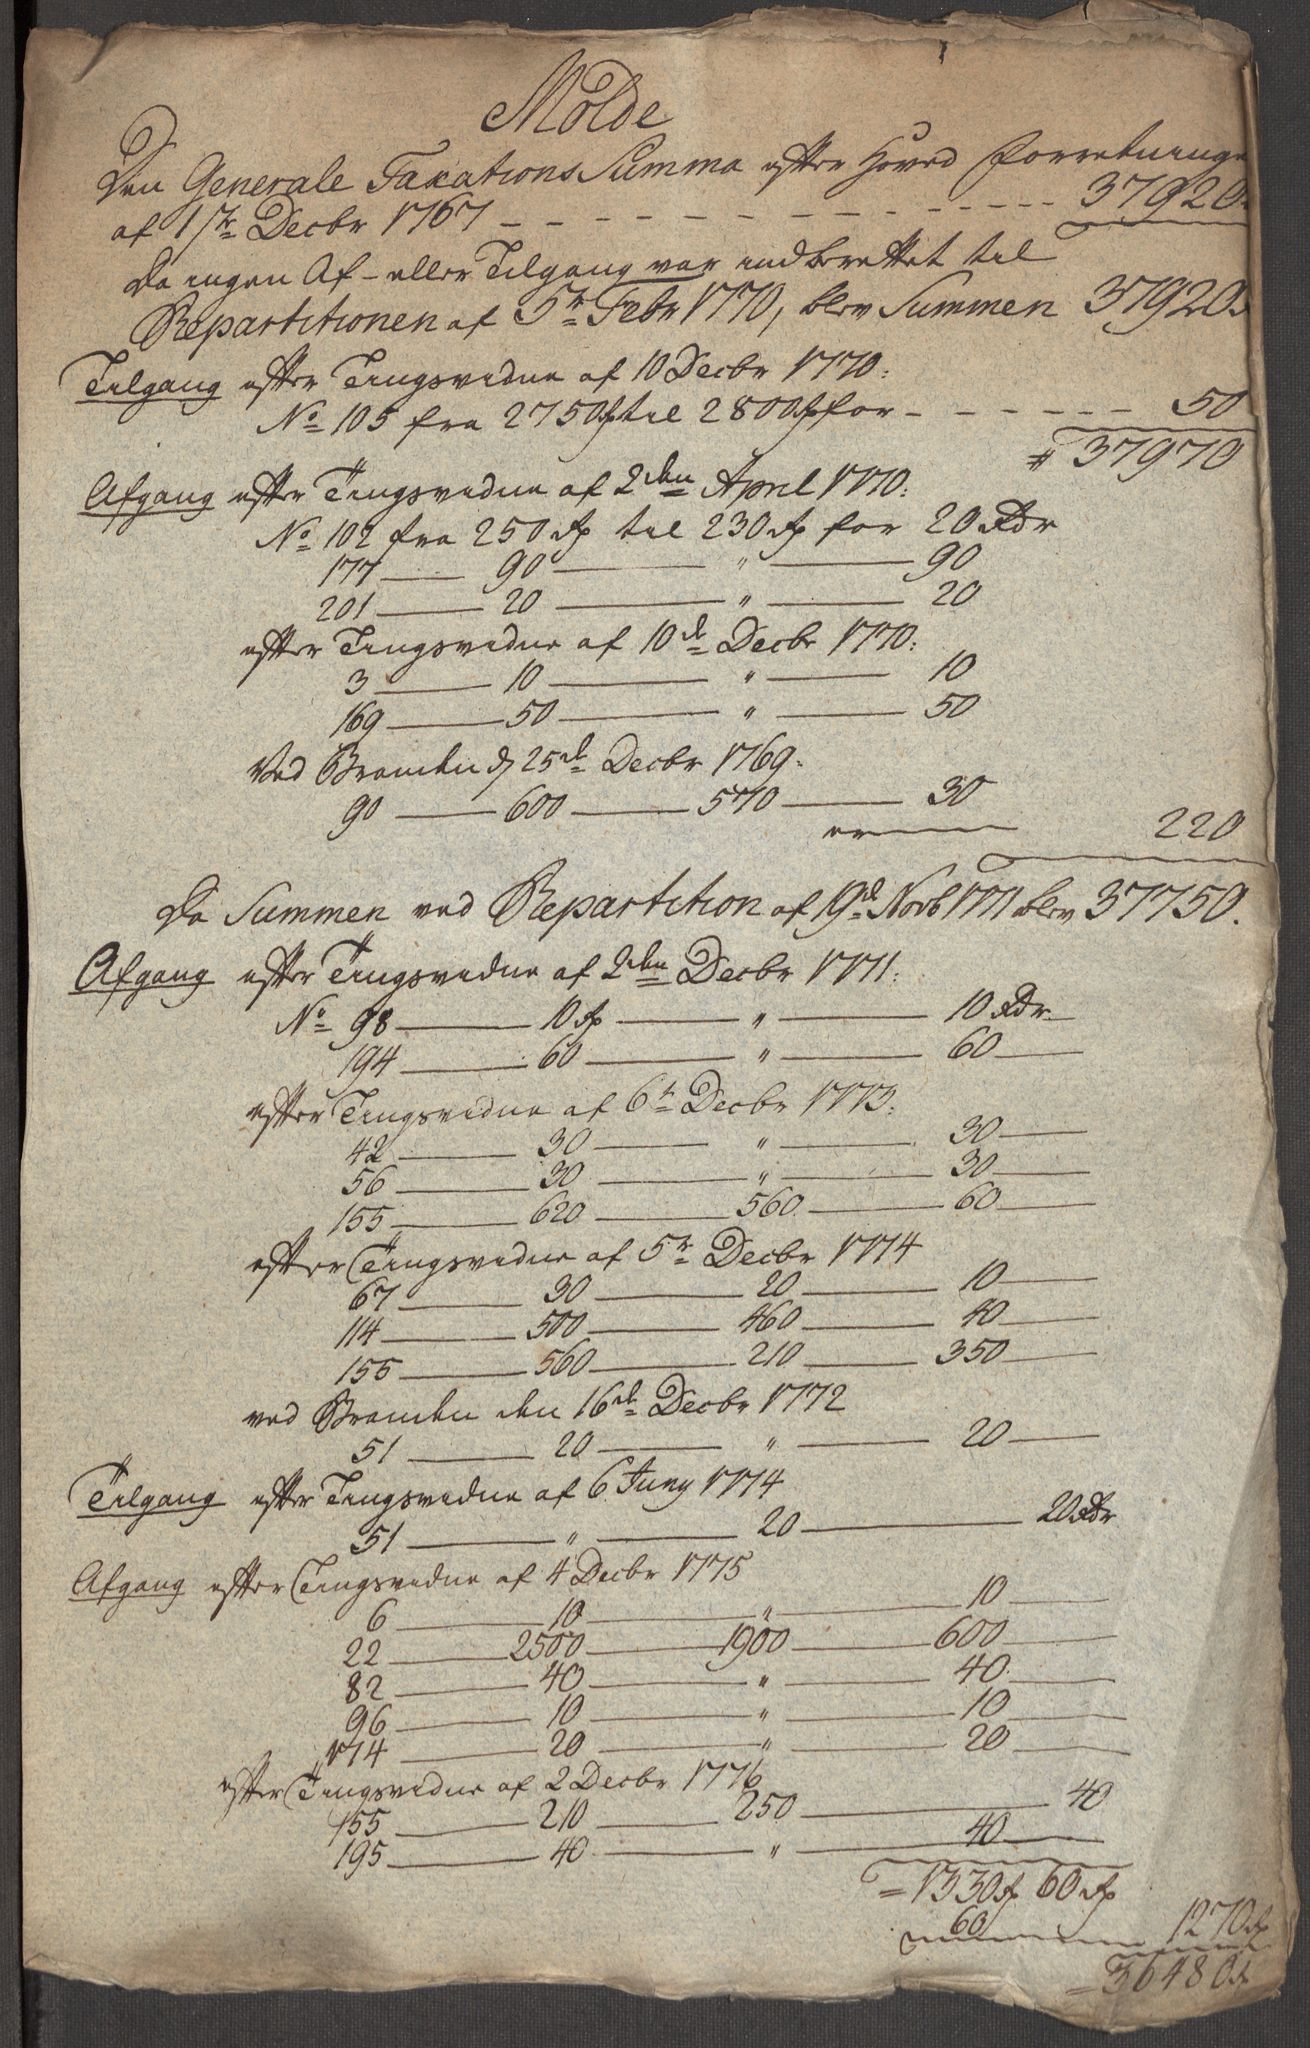 Molde
Den Generale Taxations Summa efter Hoved Forretninge
af 17tr Decbr 1767 - - - - - - - - - - - - - 37920.
Da ingen Af- eller Tilgang var indberettet til
Repartitionen af 5tr Febr 1770, blev Summen 37920.
Tilgang efter Tingsvidne af 10 Decbr 1770:
No 105 fra 2750 til 2800 for - - - - - - 50
37970
Afgang efter Tingsvidne af 2den April 1770:
No 102 fra 250 til 230 for 20 Rdr
177 — 90 — " — 90
201 — 20 — " — 20
efter Tingsvidne af 10d Decbr 1770:
3 — 10 — " — 10
169 — 50 — " — 50
Ved Branden d 25d Decbr 1769:
90 — 600 — 570 — 30
220
Da Summen ved Repartition af 19d Novb 1771 blev 37750.
Afgang efter Tingsvidne af 2den Decbr 1771:
No 98 — 10 — " — 10 Rdr
194 — 60 — " — 60
efter Tingsvidne af 6t Decbr 1773:
42 — 30 — " — 30
56 — 30 — " — 30
155 — 620 — 560 — 60
efter Tingsvidne af 5tr Decbr 1774
67 — 30 — 20 — 10
114 — 500 — 460 — 40
155 — 560 — 210 — 350
ved Branden den 16d Decbr 1772
51 — 20 — " — 20
Tilgang efter Tingsvidne af 6 Juny 1774
51 — " — 20 — 20 Rdr
Afgang efter Tingsvidne af 4 Decbr 1775
6 — 10 — " — 10
22 — 2500 — 1900 — 600
82 — 40 — " — 40
96 — 10 — " — 10
174 — 20 — " — 20
efter Tingsvidne af 2 Decbr 1776
155 — 210 — 250 — 40
195 — 40 — " — 40
= 1330 60
60 1270
= 36480